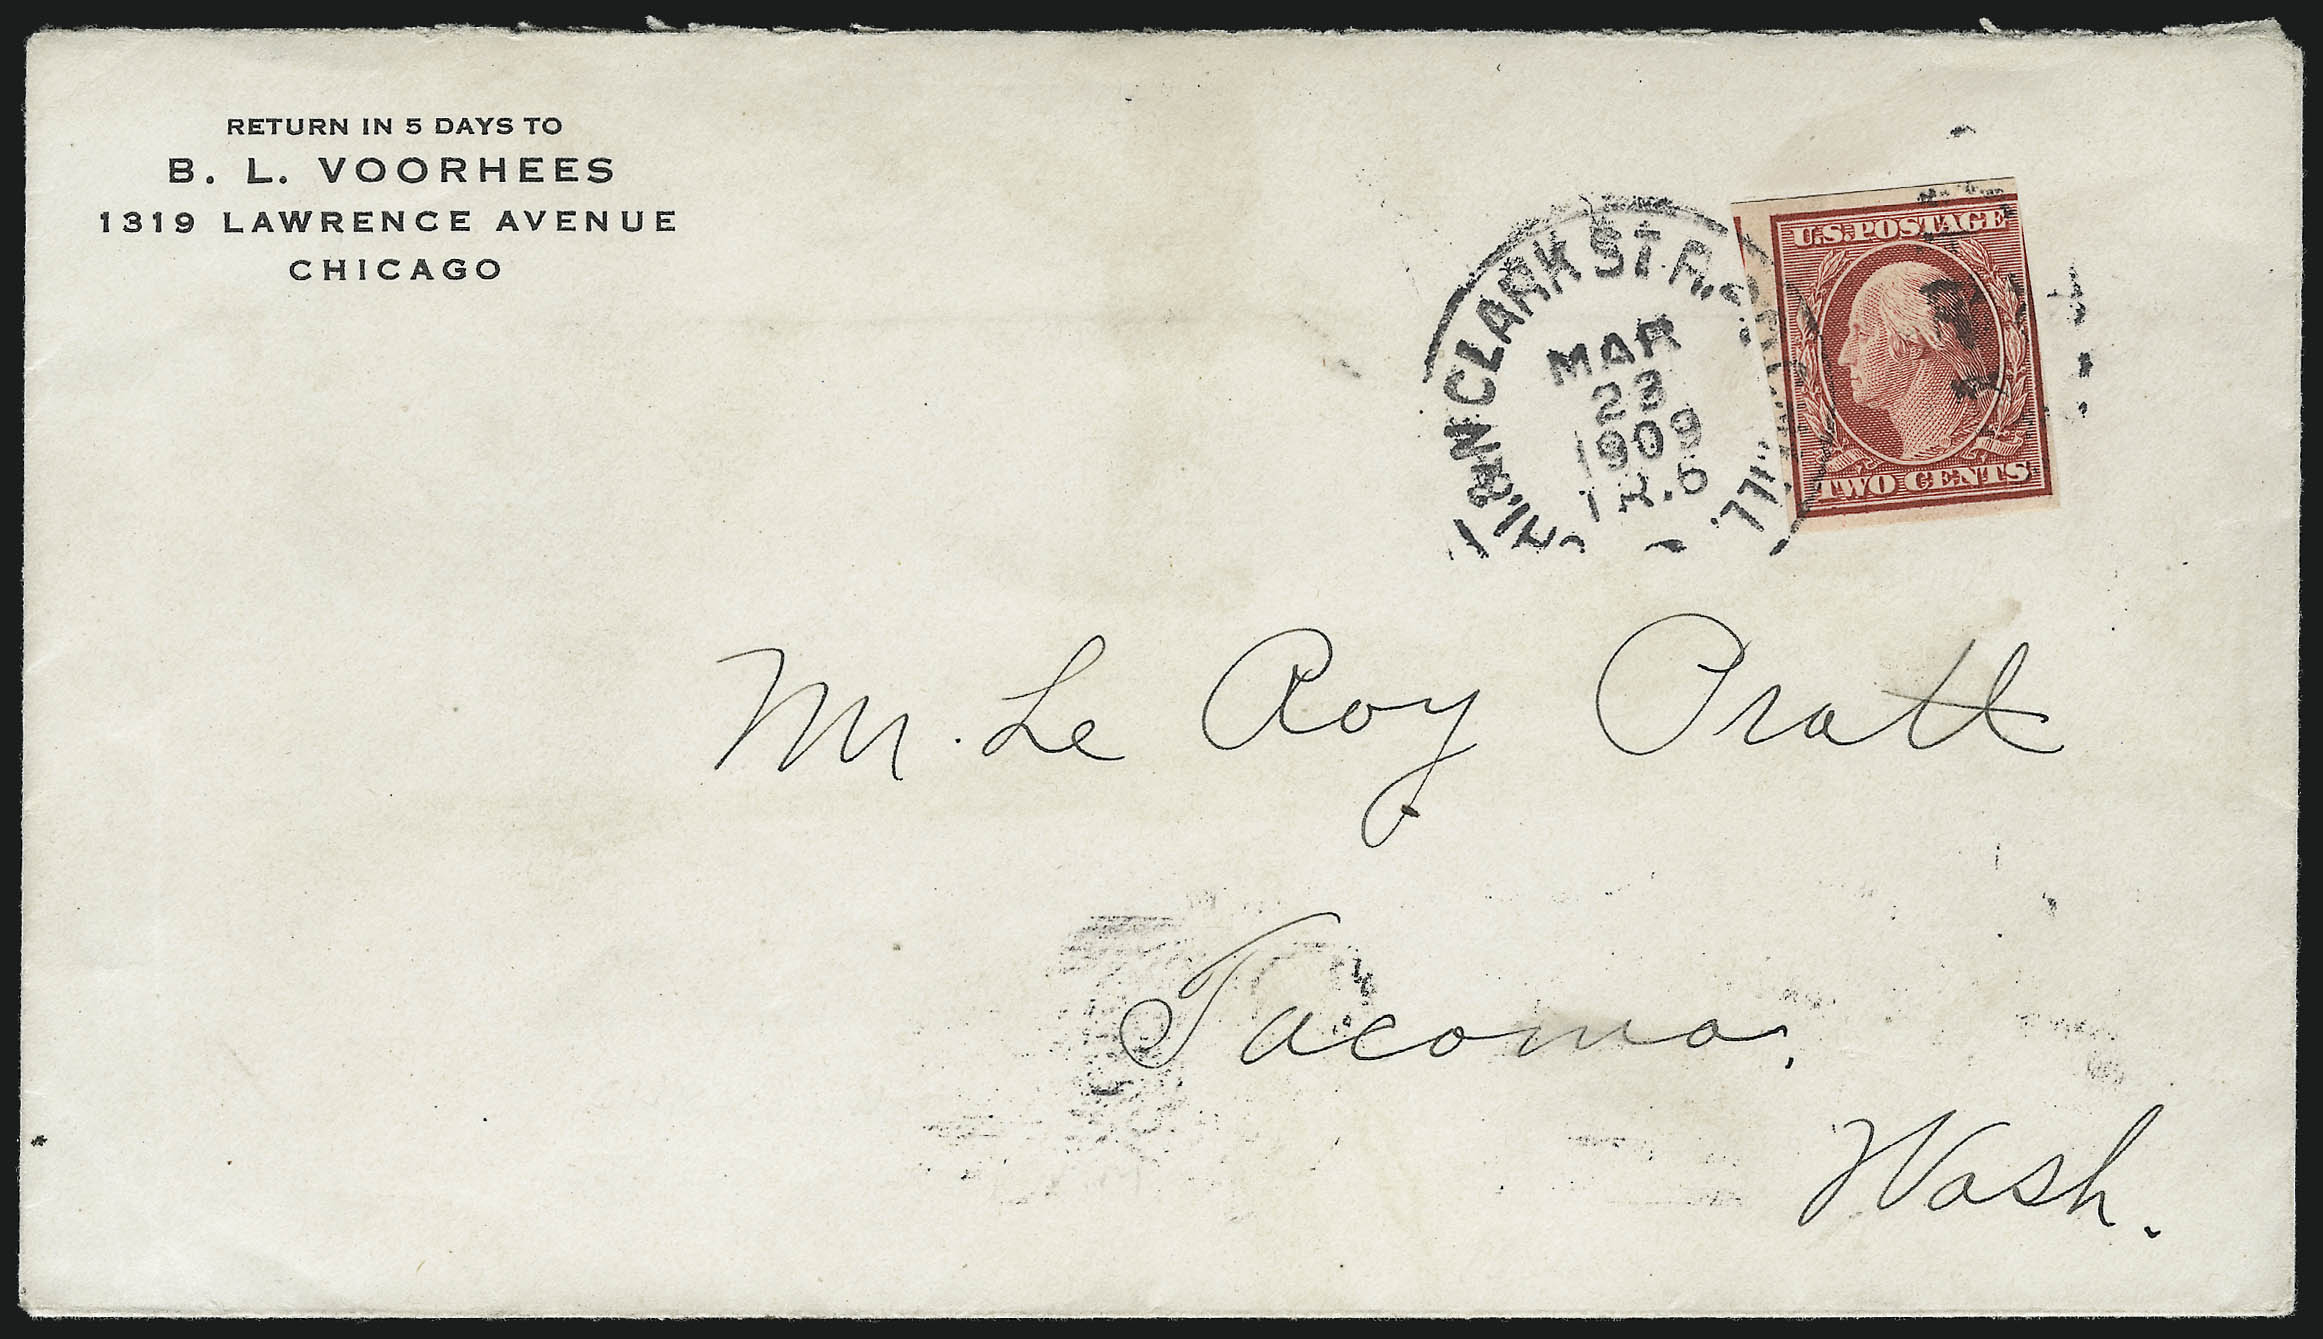 RETURN IN 5 DAYS TO
B. L. VOORHEES
1319 LAWRENCE AVENUE
CHICAGO
N CLARK ST R.P.O.
MAR
23
1909
TR.6
ILL.
U.S. POSTAGE
TWO CENTS
Mr. Le Roy Pratt
Tacoma.
Wash.